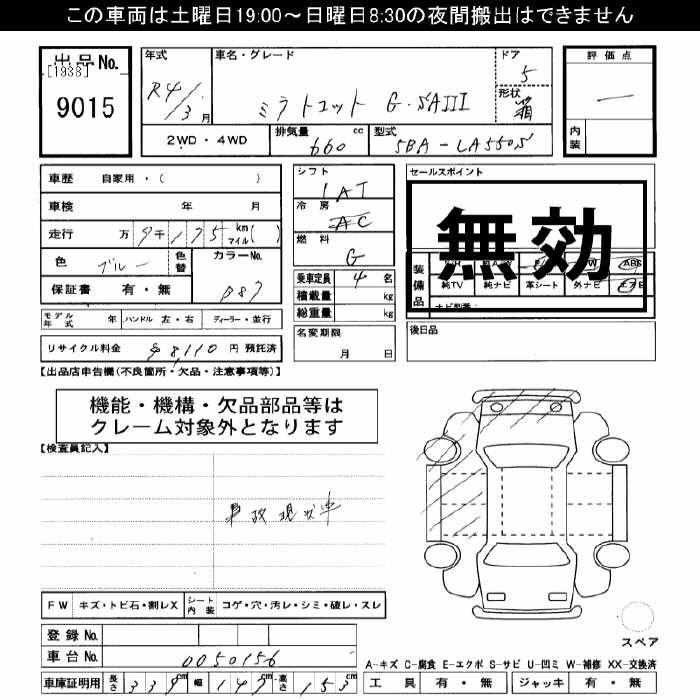 この車両は土曜日19:00～日曜日8:30の夜間搬出はできません
出品No.
[1938]
9015
年式
R4/3月
車名・グレード
ミラトコット G・SAIII
ドア
5
形状
箱
評価点
－
内装
2WD・4WD
排気量
660cc
型式
5BA-LA550S
車歴 自家用・( )
車検 年 月
走行 万9千175km マイル( )
色 ブルー
色替
カラーNo.
B87
保証書 有・無
モデル年式 年
ハンドル 左・右
ディーラー・並行
リサイクル料金 $8,110円 預託済
シフト
IAT
冷房
AC
燃料
G
乗車定員 4名
積載量 kg
総重量 kg
名変期限
月 日
セールスポイント
無効
装備品
ABS
純TV 純ナビ 革シート 外ナビ エアB
ナビ型番：
後日品
【出品店申告欄(不良箇所・欠品・注意事項等)】
機能・機構・欠品部品等は
クレーム対象外となります
【検査員記入】
事故現状車
FW キズ・トビ石・割レX
シート内装 コゲ・穴・汚レ・シミ・破レ・スレ
登録No.
車台No. 0050156
車庫証明用 長さ339cm 幅147cm 高さ153cm
スペア
A-キズ C-腐食 E-エクボ S-サビ U-凹ミ W-補修 XX-交換済
工具 有・無 ジャッキ 有・無